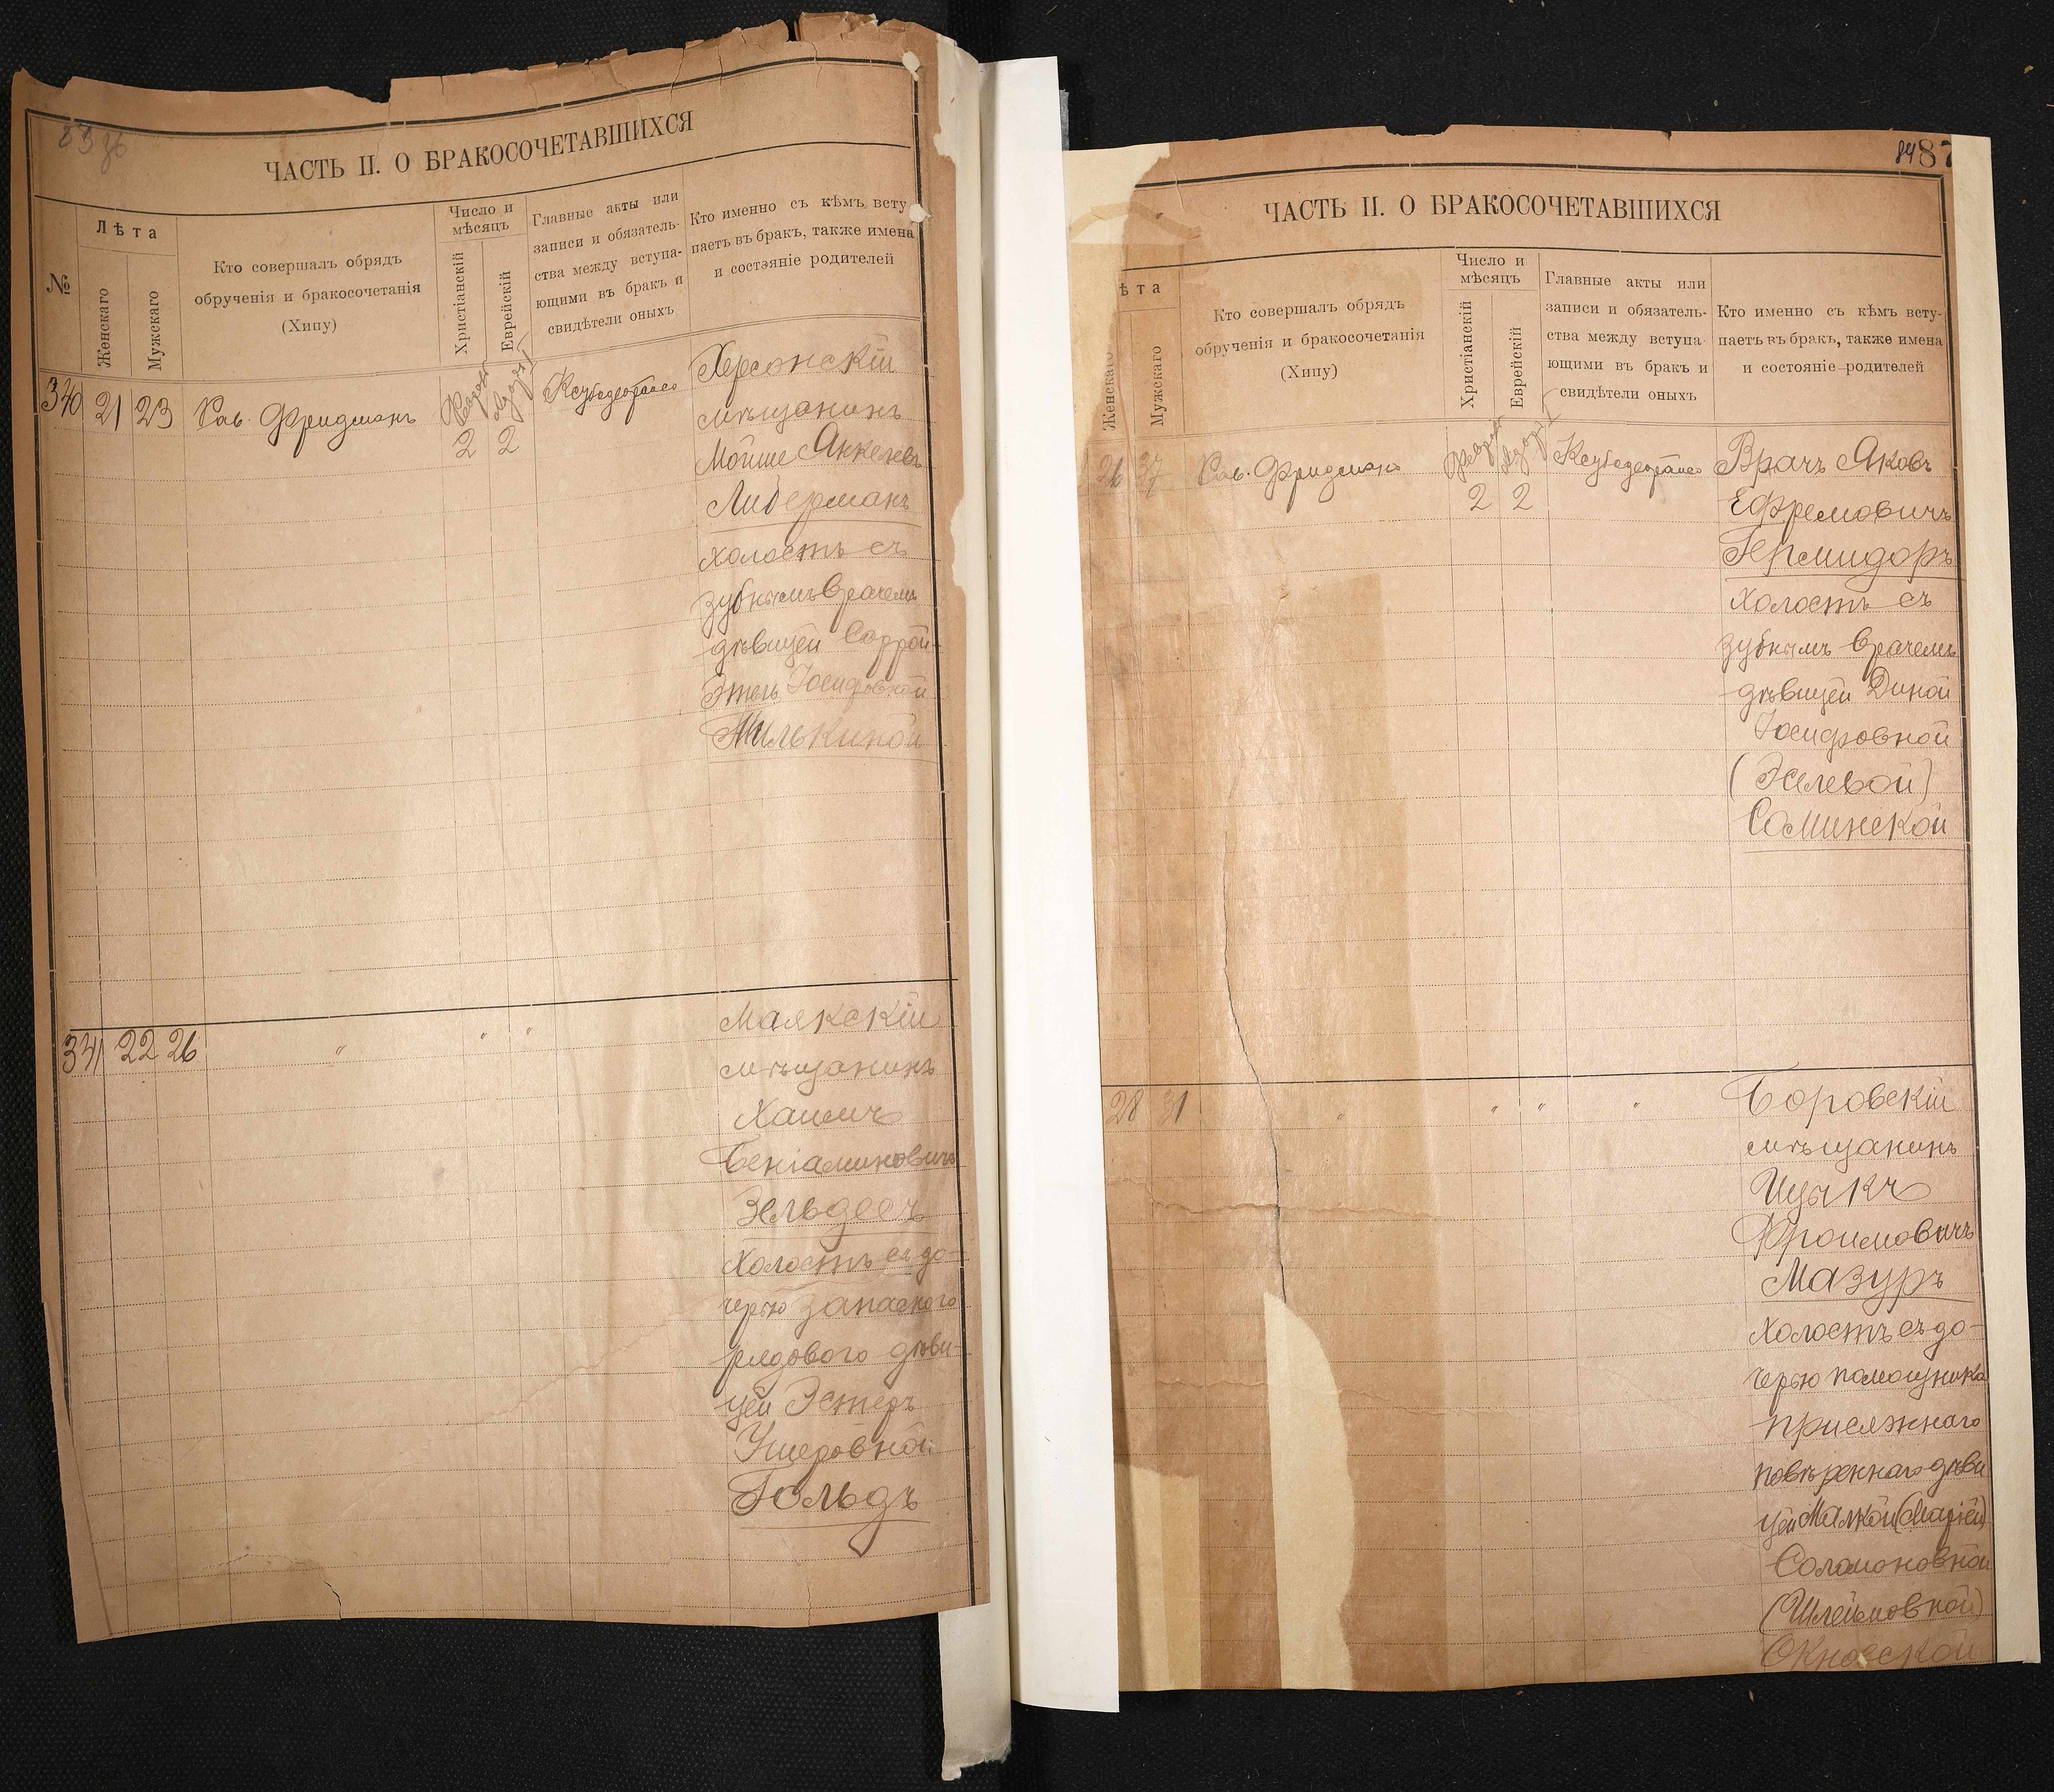 ЧАСТЬ II. О БРАКОСОЧЕТАВШИХСЯ
№
Лѣта
Женскаго
Мужскаго
Кто совершалъ обрядъ
обрученія и бракосочетанія
(Хипу)
Число и
мѣсяцъ
Христіанскій
Еврейскій
Главные акты или
записи и обязатель-
ства между вступа-
ющими въ бракъ и
свидѣтели оныхъ
Кто именно съ кѣмъ всту
паетъ въ бракъ, также имена
и состояніе родителей
340
21
23
Рав. Фридманъ
2
2
Херсонскій
мѣщанинъ
Мойше Янкелевъ
Либерманъ
холостъ съ
зубнымъ врачемъ
дѣвицей Саррой-
Этель Іосифовной
Милькиной
341
22
26
"
"
"
Маякскій
мѣщанинъ
Хаимъ
Беніаминовичъ
Зельдесъ
холостъ съ до-
черью запаснаго
рядового дѣви-
цей Эстеръ
Ушеровной
Гольдъ
84
87
ЧАСТЬ II. О БРАКОСОЧЕТАВШИХСЯ
ѣта
Женскаго
Мужскаго
Кто совершалъ обрядъ
обрученія и бракосочетанія
(Хипу)
Число и
мѣсяцъ
Христіанскій
Еврейскій
Главные акты или
записи и обязатель-
ства между вступа
ющими въ бракъ и
свидѣтели оныхъ
Кто именно съ кѣмъ всту-
паетъ въ бракъ, также имена
и состояніе родителей
26
37
Рав. Фридманъ
2
2
Врачъ Яковъ
Ефремовичъ
Гермидоръ
холостъ съ
зубнымъ врачемъ
дѣвицей Диной
Іосифовной
(Эселевой)
Соминской
28
31
"
"
"
"
Боровскій
мѣщанинъ
Ицыкъ
Фроимовичъ
Мазуръ
холостъ съ до-
черью помощника
присяжнаго
повѣреннаго дѣви
цей Малкой (Маріей)
Соломоновной
(Шлеймовной)